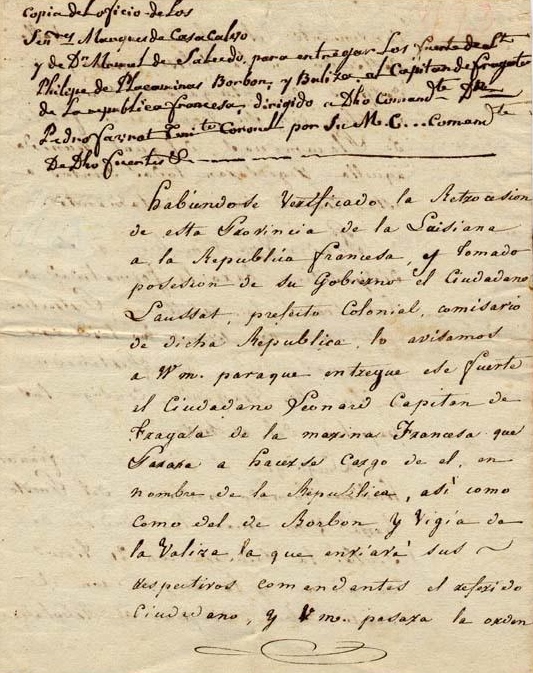 Copia de Loficio de Los
Señ.res Marques de Casa Calvo
y de Dn Manuel de Salcedo, para entregar Los fuerte de Sn
Phelipe de Placaminas Borbon, y Baliza, al Capitan de Fragata
de La republica francesa, dirigido a Dho Comand.te Dn
Pedro Favrot Teni.te Coronel por Su M. C... Comand.te
De Dho fuertes &
Habiendose Verificado la Retrocesion
de esta Provincia de la Luisiana
a la Republica francesa, y tomado
posesion de su Gobierno el Ciudadano
Laussat, prefecto Colonial, comisario
de dicha Republica, lo avisamos
a Vm. paraque entregue ese fuerte
el Ciudadano Leonard Capitan de
Fragata de la marina Francesa que
Pasara a hacerse Cargo de el, en
nombre de la Republica, así como
Como del de Borbon y Vigía de
la Valiza, la que enviará sus
respectivos comendantes el referido
Ciudadano, y Vm. pasara la orden